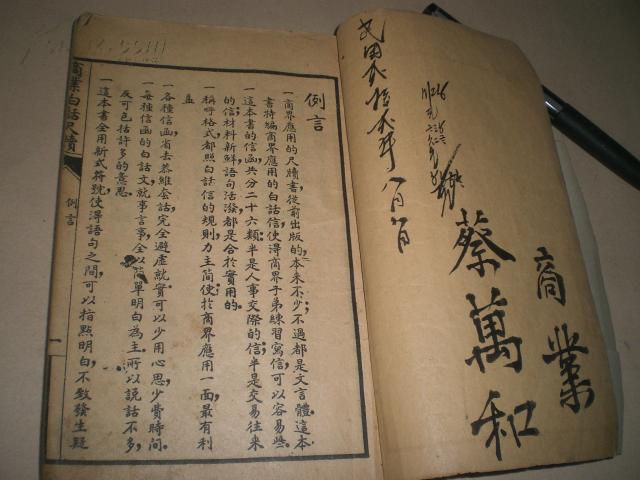 商業
蔡萬和
民國
年八月
例言
一商界應用的尺牘書,從前出版的本來不少;不過都是文言體,這本
書特編商界應用的白話信,使得商界子弟練習寫信,可以容易些。
一這本書的信函,共分二十六類,半是人事交際的信,半是交易往來
的信,材料新鮮,語句活潑,都是合於實用的。
一稱呼格式,都照白話信的規則,力主簡便,於商界應用一面,最有利
益
一各種信函,省去恭維套話,完全避虛就實,可以少用心思,少費時間。
一每種信函的白話文,就事言事,全以簡單明白為主,所以說話不多,
反可包括許多的意思。
一這本書全用新式符號,使得語句之間,可以指點明白,不致發生疑
商業白話尺牘
例言
一